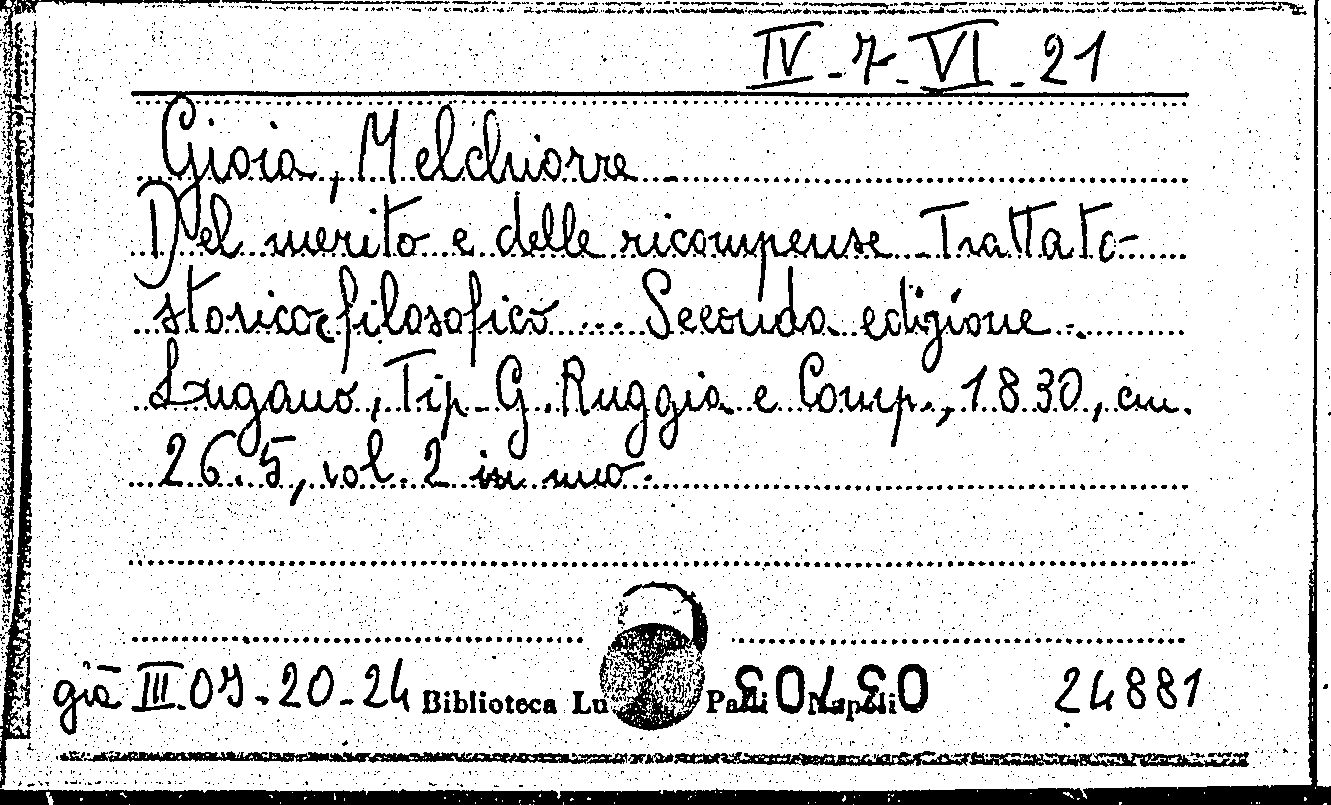 IV-7-VI-21
Gioia, Melchiorre -
Del merito e delle ricompense - Trattato
storico-filosofico ... Seconda edizione -
Lugano, Tip. G. Ruggia e Comp., 1830, cm.
26.5, vol. 2 in uno.
già III.09-20-24 Biblioteca Lu Palli Napoli 24881